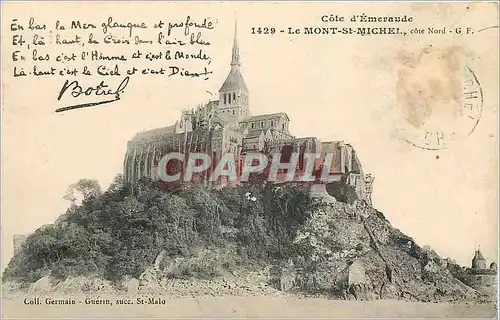 En bas la Mer glauque et profonde
Et, là haut, la Croix dans l'air bleu
En bas c'est l'Homme et c'est le Monde,
Là-haut c'est le Ciel et c'est Dieu!
Botrel
Côte d'Émeraude
1429 - Le MONT-St-MICHEL, côte Nord - G F.
CPARAMA
Coll. Germain - Guérin, succ. St-Malo